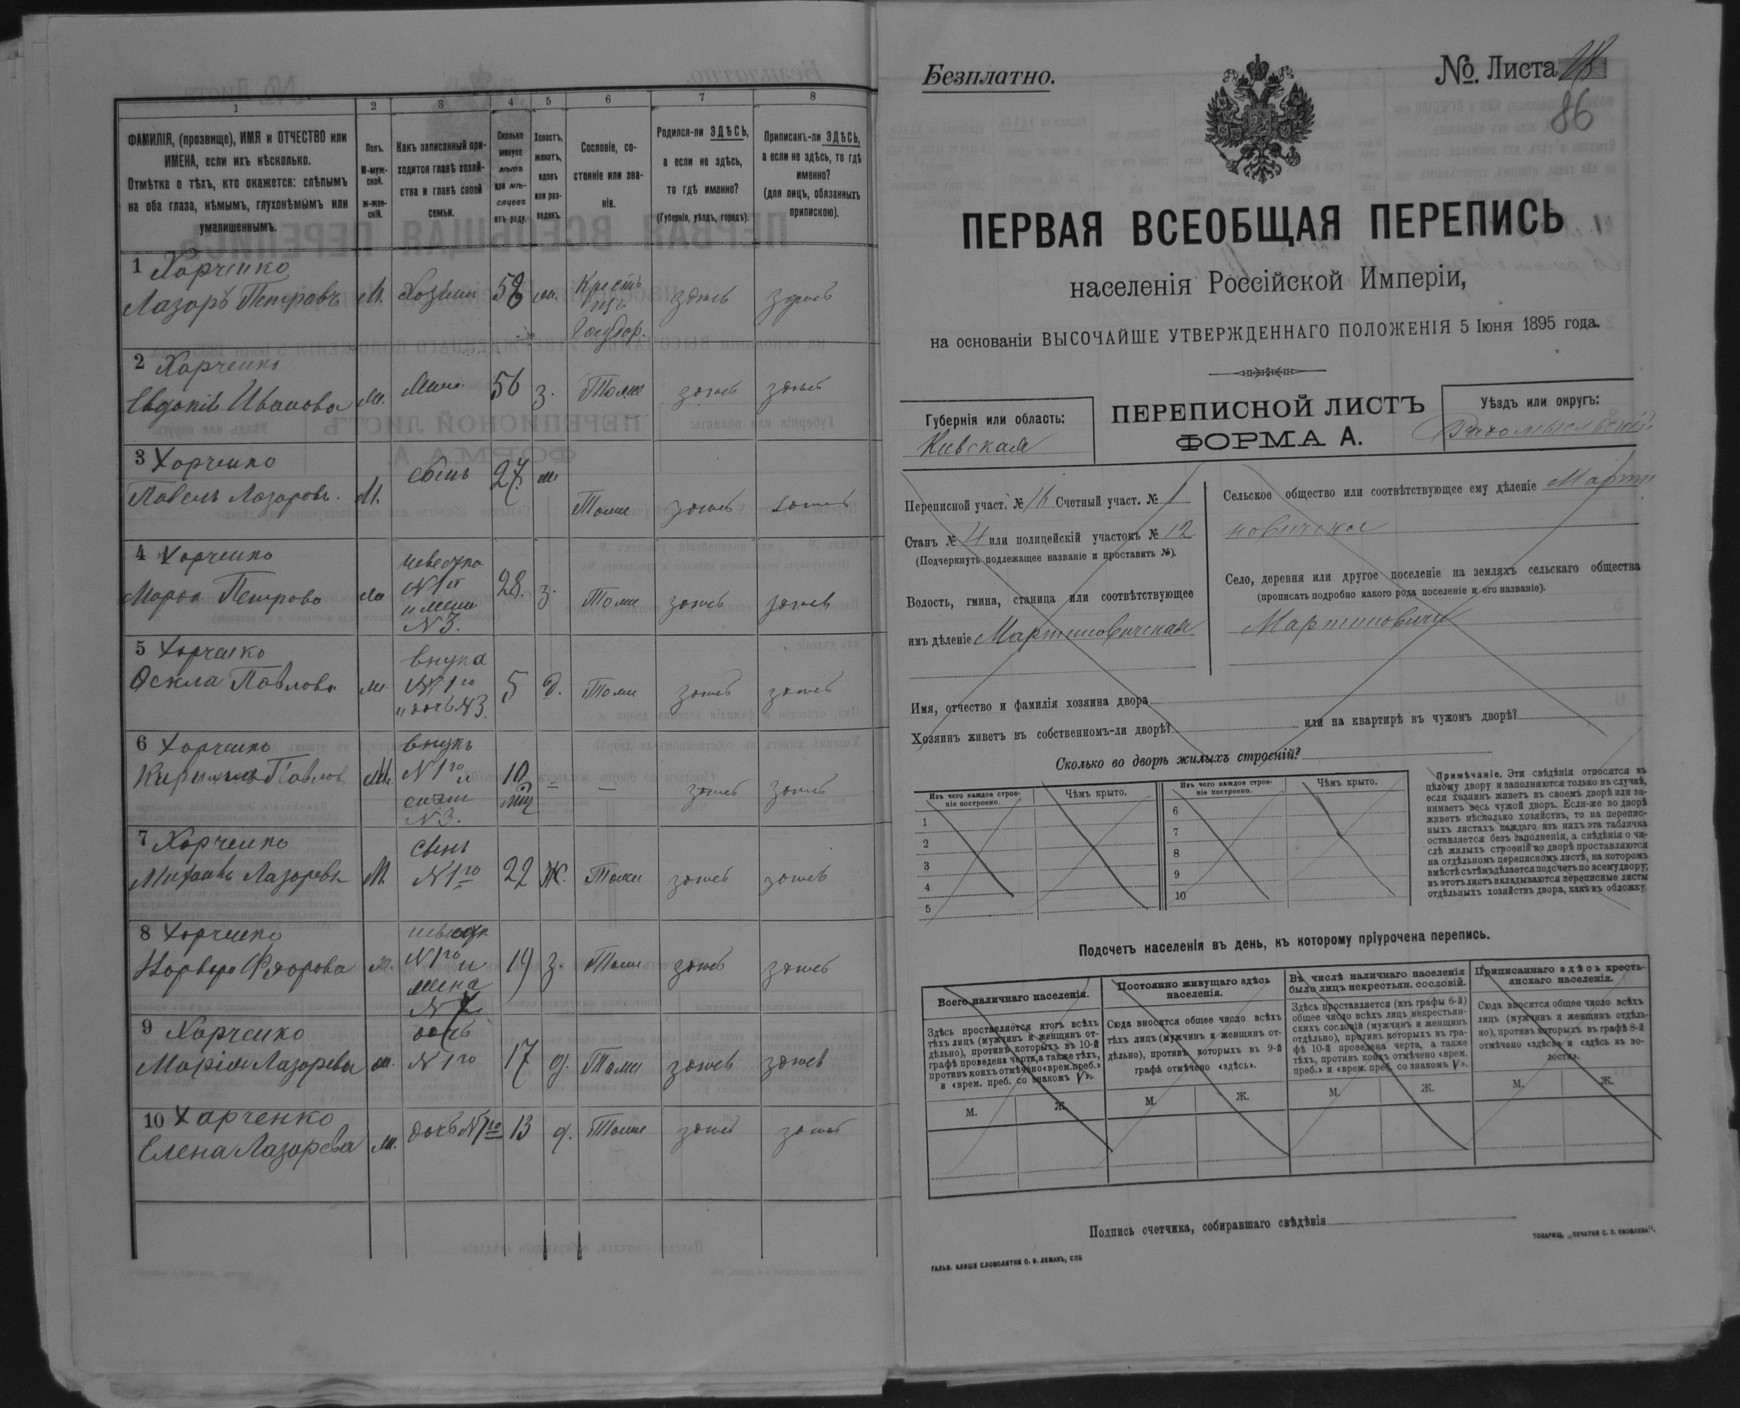 1
2
3
4
5
6
7
8
ФАМИЛІЯ, (прозвище), ИМЯ и ОТЧЕСТВО или
ИМЕНА, если ихъ нѣсколько.
Отмѣтка о тѣхъ, кто окажется: слѣпымъ
на оба глаза, нѣмымъ, глухонѣмымъ или
умалишеннымъ.
Полъ.
М-муж-
ской.
ж-жен-
скій.
Какъ записанный при-
ходится главѣ хозяй-
ства и главѣ своей
семьи.
Сколько
минуло
лѣтъ
или мѣ-
сяцевъ
отъ роду.
Холостъ,
женатъ,
вдовъ
или раз-
веденъ.
Сословіе, со-
стояніе или зва-
ніе.
Родился-ли ЗДѢСЬ,
а если не здѣсь,
то гдѣ именно?
(Губернія, уѣздъ, городъ).
Приписанъ-ли ЗДѢСЬ,
а если не здѣсь, то гдѣ
именно?
(для лицъ, обязанныхъ
припискою).
1 Харченко
Лазаръ Петровъ М. Хозяин 58 ж. Крестъ здѣсь здѣсь
2 Харченко
Евдокія Иванова ж. жена 56 з. Тоже здѣсь здѣсь
3 Харченко
Павелъ Лазаровъ М. сынъ 27 ж Тоже здѣсь здѣсь
4 Харченко
Марѳа Петрова ж невестка
N 1го
и жена
N 3. 28. з. Тоже здѣсь здѣсь
5 Харченко
Павлова ж. внука
N 1го
и дочь N 3. 5 д. Тоже здѣсь здѣсь
6 Харченко
Павлов М. внукъ
N 1го и
сынъ
N 3. 10 – – здѣсь здѣсь
7 Харченко
Михаилъ Лазаревъ М. сынъ
N 1го 22 Ж. Тоже здѣсь здѣсь
8 Харченко
Варвара Фдорова ж. невестк
N 1го и
жена
N 7 19 з. Тоже здѣсь здѣсь
9 Харченко
Марія Лазарева ж. дочь
N 1го 17 д. Тоже здѣсь здѣсь
10 Харченко
Елена Лазарева ж. дочь N 1го 13 д. Тоже здѣсь здѣсь
Безплатно.
№ Листа
86
ПЕРВАЯ ВСЕОБЩАЯ ПЕРЕПИСЬ
населенія Россійской Имперіи,
на основаніи ВЫСОЧАЙШЕ УТВЕРЖДЕННАГО ПОЛОЖЕНІЯ 5 Іюня 1895 года.
Губернія или область:
Кіевская
ПЕРЕПИСНОЙ ЛИСТЪ
ФОРМА А.
Уѣздъ или округъ:
Радомысльскій
Переписной участ. № 16 Счетный участ. № 1
Станъ № 4 или полицейскій участокъ № 12
(Подчеркнуть подлежащее названіе и проставить №).
Волость, гмина, станица или соотвѣтствующее
имъ дѣленіе Мартиновичская
Сельское общество или соотвѣтствующее ему дѣленіе Марти
новичское
Село, деревня или другое поселеніе на земляхъ сельскаго общества
(прописать подробно какого рода поселеніе и его названіе).
Мартиновичи
Имя, отчество и фамилія хозяина двора
Хозяинъ живетъ въ собственномъ-ли дворѣ? или на квартирѣ въ чужомъ дворѣ?
Сколько во дворѣ жилыхъ строеній?
Изъ чего каждое строе-
ніе построено.
Чѣмъ крыто.
Изъ чего каждое строе-
ніе построено.
Чѣмъ крыто.
1
2
3
4
5
6
7
8
9
10
Примѣчаніе. Эти свѣдѣнія относятся къ
цѣлому двору и заполняются только въ случаѣ,
если хозяинъ живетъ въ своемъ дворѣ или за-
нимаетъ весь чужой дворъ. Если-же во дворѣ
живетъ нѣсколько хозяйствъ, то на перепис-
ныхъ листахъ каждаго изъ нихъ эта табличка
оставляется безъ заполненія, а свѣдѣнія о чи-
слѣ жилыхъ строеній во дворѣ проставляются
на отдѣльномъ переписномъ листѣ, на которомъ
вмѣстѣ съ тѣмъ дѣлается подсчетъ по всему двору;
въ этотъ листъ вкладываются переписные листы
отдѣльныхъ хозяйствъ двора, какъ въ обложку.
Подсчетъ населенія въ день, къ которому пріурочена перепись.
Всего наличнаго населенія.
Здѣсь проставляется итогъ всѣхъ
тѣхъ лицъ (мужчинъ и женщинъ от-
дѣльно), противъ которыхъ въ 10-й
графѣ проведена черта, а также тѣхъ,
противъ коихъ отмѣчено «врем. преб.»
и «врем. преб. со знакомъ V».
Постоянно живущаго здѣсь
населенія.
Сюда вносится общее число всѣхъ
тѣхъ лицъ (мужчинъ и женщинъ от-
дѣльно), противъ которыхъ въ 9-й
графѣ отмѣчено «здѣсь».
Въ числѣ наличнаго населенія
было лицъ некрестьян. сословій.
Здѣсь проставляется (изъ графы 6-й)
общее число всѣхъ лицъ некрестьян-
скихъ сословій (мужчинъ и женщинъ
отдѣльно), противъ которыхъ въ гра-
фѣ 10-й проведена черта, а также
тѣхъ, противъ коихъ отмѣчено «врем.
преб.» и «врем. преб. со знакомъ V».
Приписаннаго здѣсь кресть-
янскаго населенія.
Сюда вносится общее число всѣхъ
лицъ (мужчинъ и женщинъ отдѣль-
но), противъ которыхъ въ графѣ 8-й
отмѣчено «здѣсь» и «здѣсь въ во-
лости».
М. Ж. М. Ж. М. Ж. М. Ж.
Подпись счетчика, собиравшаго свѣдѣнія
ГАЛЬВ. КЛИШЕ СЛОВОЛИТНИ О. И. ЛЕМАНЪ, СПБ
ТОВАРИЩ. „ПЕЧАТНЯ С. П. ЯКОВЛЕВА“.